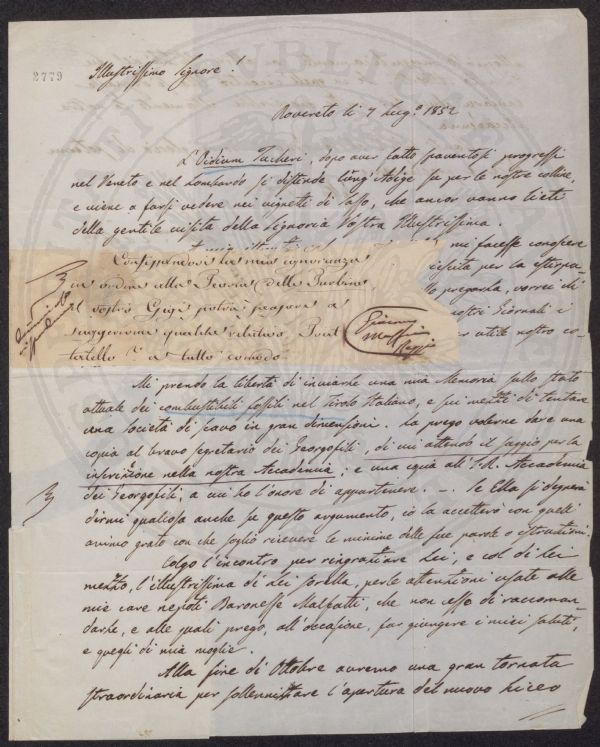 2779
Illustrissimo Signore!
Rovereto li 7 Lug.º 1852
L'Oidium Tuckeri, dopo aver fatto spaventosi progressi
nel Veneto e nel Lombardo si distende lung' Adige su per le nostre colline,
e viene a farsi vedere nei vigneti di Sasso, che ancor vanno lieti
della gentile visita della Signoria Vostra Illustrissima.
mi facesse conoscere
per la
pregarla, vorrei che
nostri Giornali i
per utile nostro co-
Confessandosi la mia ignoranza
in ordine alla Teoria delle Turbine
il vostro Gigi potrà pensare a
suggerirmi qualche relativo Pont
tutto comodo
Mi prendo la libertà di inviarle una mia Memoria sullo stato
attuale dei combustibili fossili nel Tirolo Italiano, e sui mezzi di tentare
una società di scavo in gran dimensioni. La prego volerne dare una
copia al bravo segretario dei Georgofili, di cui attendo il saggio per la
inscrizione nella nostra Accademia; e una eguale all'I. R. Accademia
dei Georgofili, a cui ho l'onore di appartenere. – Se Ella si degnerà
dirmi qualcosa anche su questo argomento, io la accetterò con quell'
animo grato con che soglio ricevere le minime delle sue parole o istruzioni.
Colgo l'incontro per ringraziare Lei, e col di Lei
mezzo, l'illustrissima di Lei sorella, per le attenzioni usate alle
mie care nepoti Baronesse Malfatti, che non cesso di raccoman-
darle, e alle quali prego, all'occasione, far giungere i miei saluti,
e quegli di mia moglie.
Alla fine di Ottobre avremo una gran tornata
straordinaria per sollennizzare l'apertura del nuovo Liceo